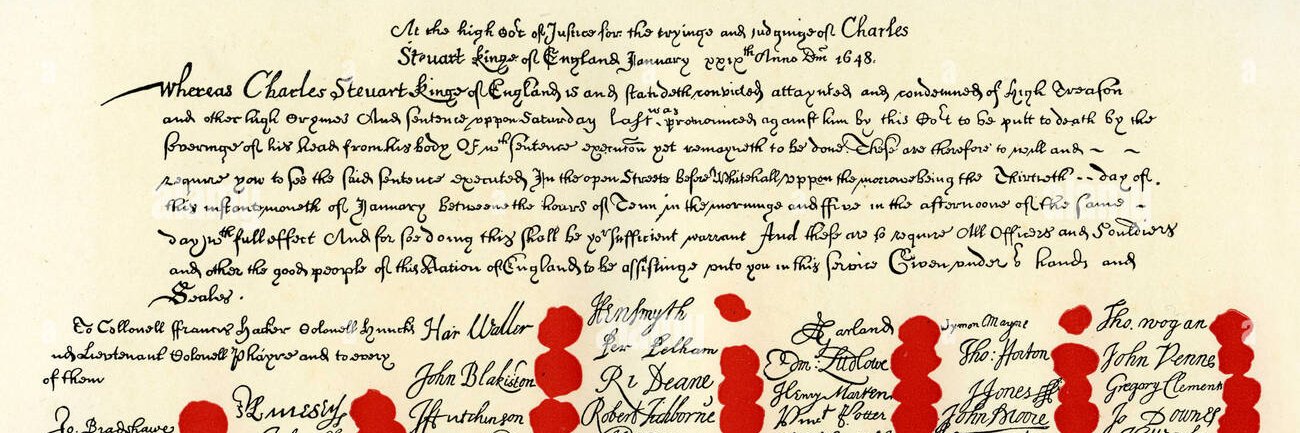 At the high Cort of Justice for the tryinge and iudginge of Charles
Steuart kinge of England January xxixth Anno Dm 1648.
Whereas Charles Steuart kinge of England is and standeth convicted attaynted and condemned of High Treason
and other high Crymes And sentence uppon Saturday last was pronounced against him by this Cort to be putt to death by the
severinge of his head from his body Of wch sentence execucon yet remayneth to be done. These are therefore to will and
require you to see the said sentence executed In the open Streete before Whitehall uppon the morrowe being the Thirtieth day of
this instant moneth of January betweene the hours of Tenn in the morninge and ffive in the afternoone of the same
day wth full effect And for soe doing this shall be yor sufficient warrant And these are to require All Officers and Souldiers
and other the good people of this Nation of England to be assistinge unto you in this service Given under or hands and
Seales.
To Collonell ffrancis Hacker Colonell Huncks
and Lieutenant Colonell Phayre and to every
of them
Jo. Bradshawe
Har Waller
John Blakiston
J Hutchinson
Hen Smyth
Per Pelham
Ri Deane
Robert Tichborne
Garland
Edm: Ludlowe
Henry Marten
Vinct Potter
Symon Mayne
Tho: Horton
J Jones
John Moore
Tho. wogan
John Venne
Gregory Clement
Jo Downes